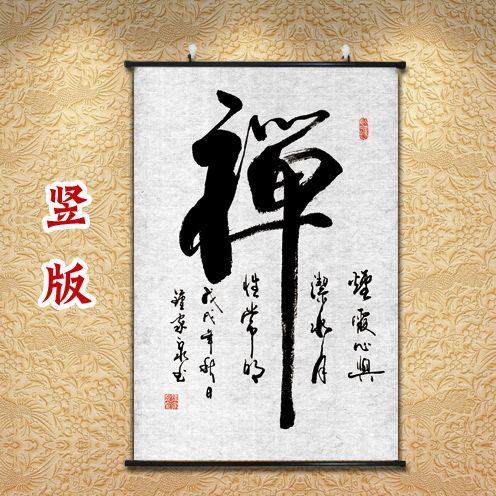 竖版
禪
煙霞心與
潔水月
性常明
戊戌年秋日
鐘家泉书